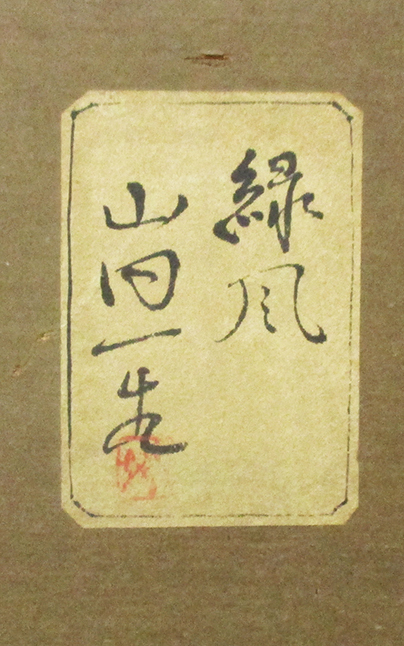 緑風
山内一生